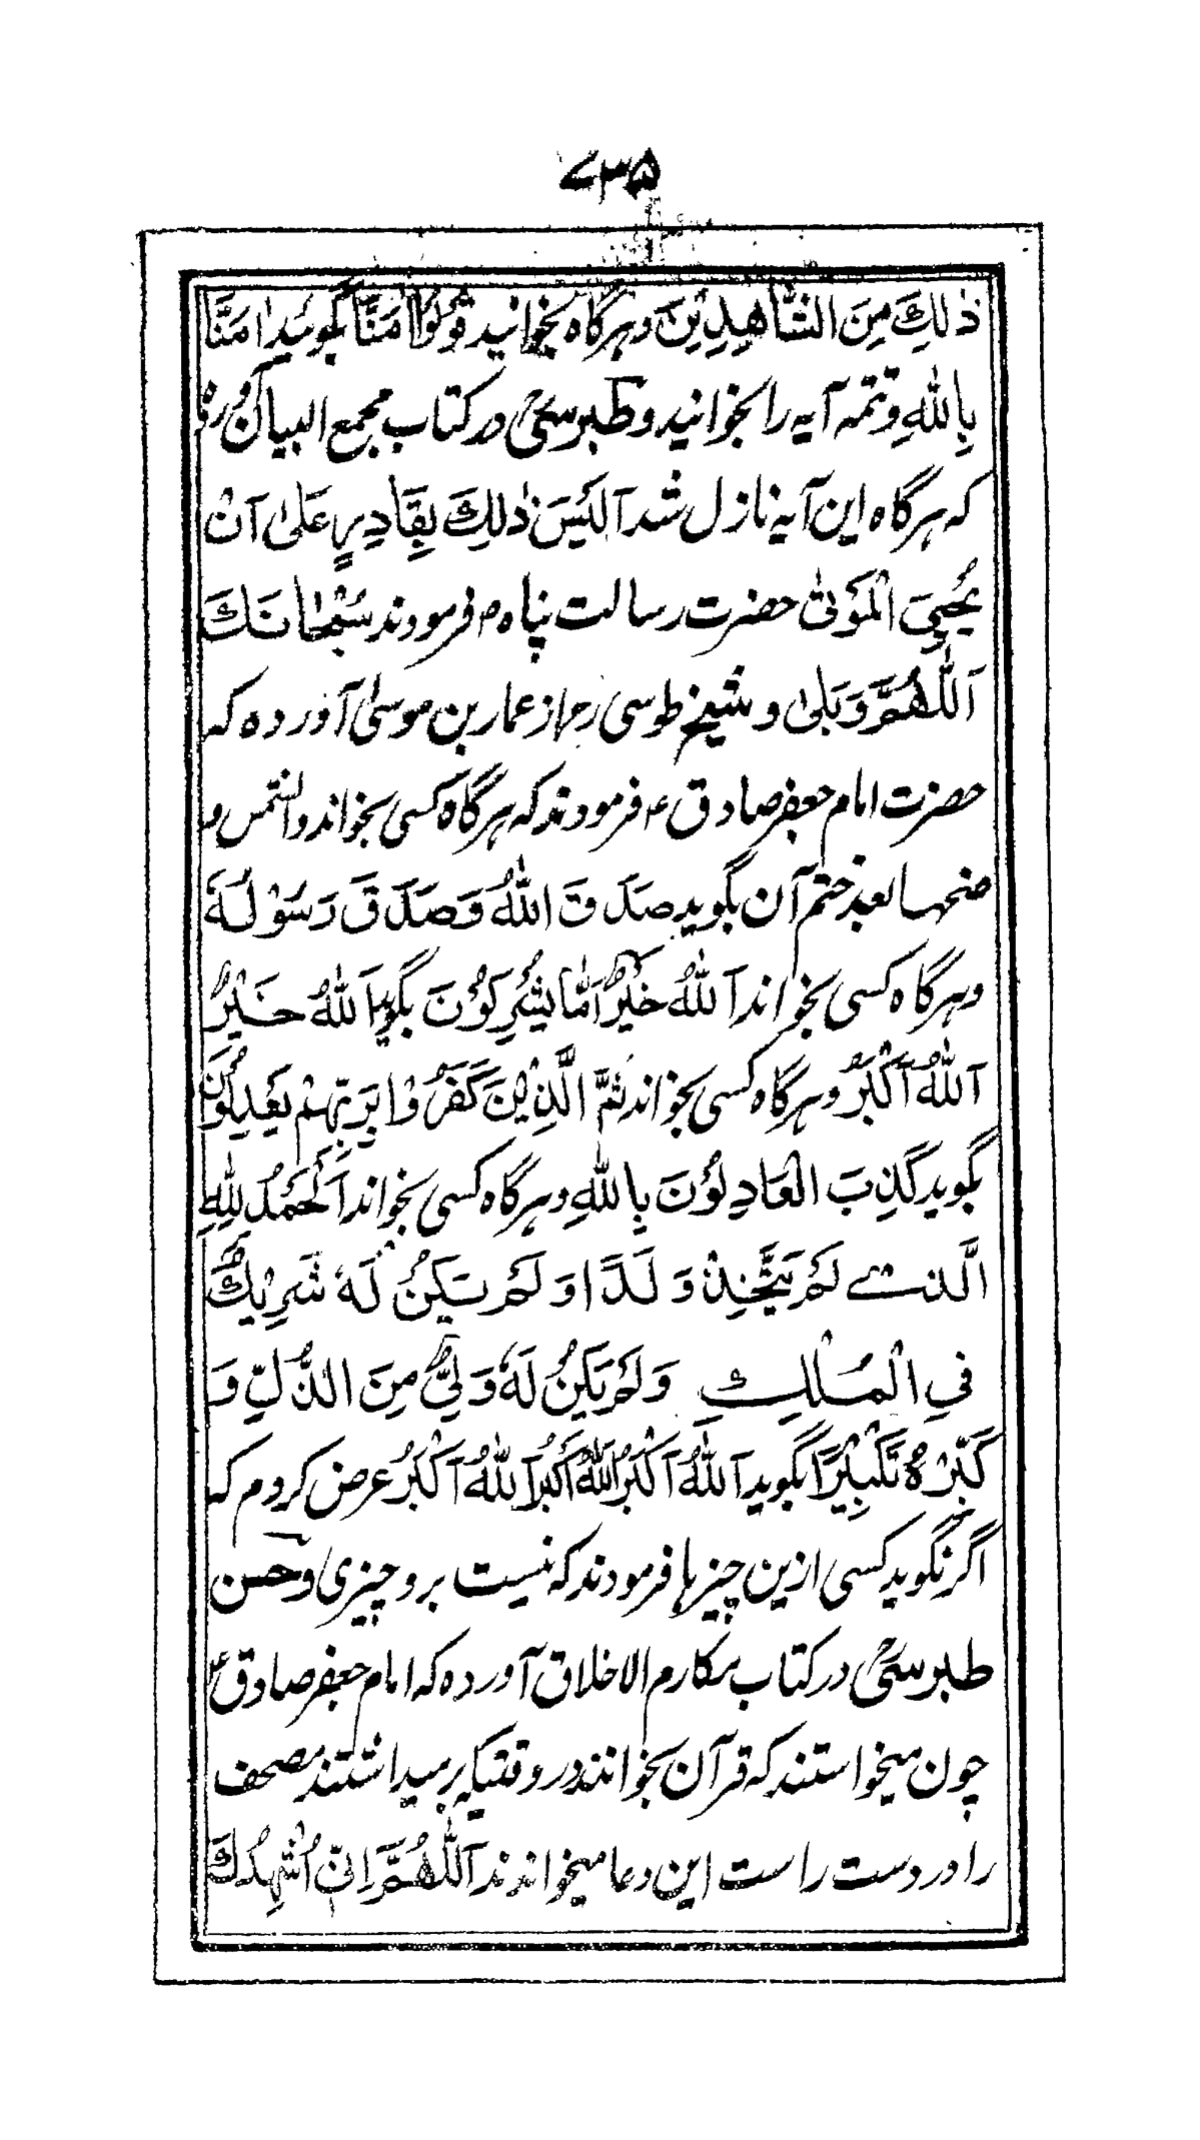 ۷۳۵
ذٰلِكَ مِنَ الشَّاهِدِيْنَ وهرگاه بخوانيد قُوْلُوْا اٰمَنَّا بگوئيد اٰمَنَّا
بِاللّٰهِ وتتمه آيه را بخوانيد وطبرسیؒ در كتاب مجمع البيان آورده
كه هرگاه اين آيه نازل شد اَلَيْسَ ذٰلِكَ بِقَادِرٍ عَلىٰ اَنْ
يُحْيِيَ الْمَوْتىٰ حضرت رسالت پناه ص فرمودند سُبْحَانَكَ
اَللّٰهُمَّ وَبَلىٰ و شيخ طوسی رح از عمار بن موسیٰ آورده كه
حضرت امام جعفر صادق ع فرمودند كه هرگاه كسی بخواند والشمس و
ضحها بعد ختم آن بگويد صَدَقَ اللّٰهُ وَصَدَقَ رَسُوْلُهٗ
وهرگاه كسی بخواند اَللّٰهُ خَيْرٌ اَمَّا يُشْرِكُوْنَ بگويد اَللّٰهُ خَيْرٌ
اَللّٰهُ اَكْبَرُ وهرگاه كسی بخواند ثُمَّ الَّذِيْنَ كَفَرُوْا بِرَبِّهِمْ يَعْدِلُوْنَ
بگويد كَذِبَ الْعَادِلُوْنَ بِاللّٰهِ وهرگاه كسی بخواند اَلْحَمْدُ لِلّٰهِ
الَّذِے لَمْ يَتَّخِذْ وَلَدًا وَلَمْ يَكُنْ لَهٗ شَرِيْكٌ
فِي الْمُلْكِ وَلَمْ يَكُنْ لَهٗ وَلِيٌّ مِنَ الذُّلِّ وَ
كَبِّرْهُ تَكْبِيْرًا بگويد اَللّٰهُ اَكْبَرُ اَللّٰهُ اَكْبَرُ اَللّٰهُ اَكْبَرُ عرض كردم كه
اگر نگويد كسی ازين چيزها فرمودند كه نيست برو چيزی وحسن
طبرسیؒ در كتاب مكارم الاخلاق آورده كه امام جعفر صادق ع
چون ميخواستند كه قرآن بخوانند در وقتيكه برميداشتند مصحف
را در دست راست اين دعا ميخواندند اَللّٰهُمَّ اِنِّيْ اُشْهِدُكَ